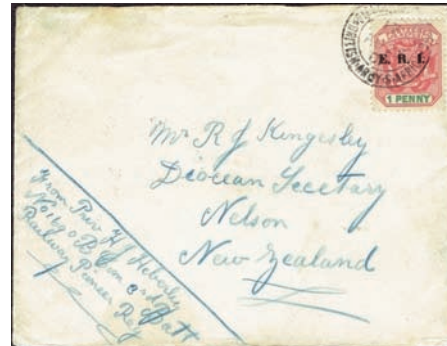 E. R. I.
1 PENNY
Mr R J Kingesley
Diocean Secetary
Nelson
New Zealand
From Priv H J Heberley
No 1690 B Com 3rd Batt
Railway Pioneer Reg